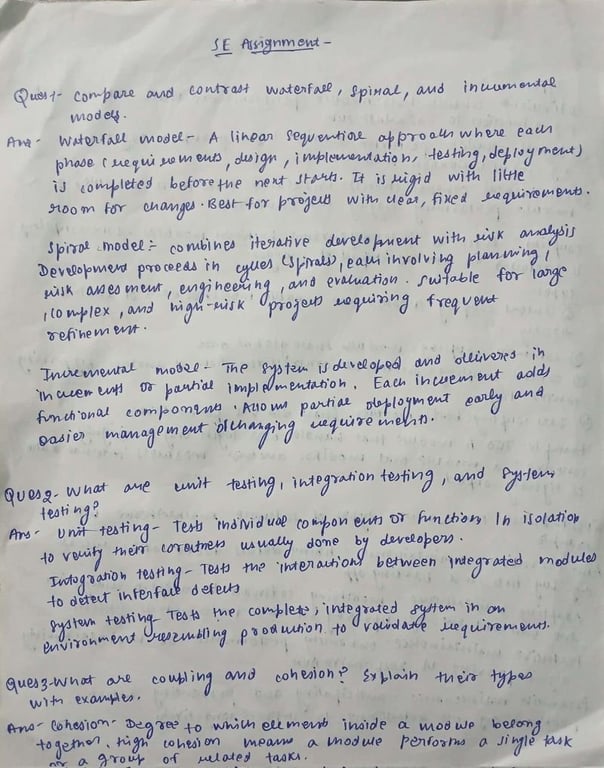 SE Assignment -
Ques1- Compare and contrast waterfall, spiral, and incremental
models.
Ans- Waterfall model - A linear sequential approach where each
phase (requirements, design, implementation, testing, deployment)
is completed before the next starts. It is rigid with little
room for changes. Best for projects with clear, fixed requirements.
Spiral model:- combines iterative development with risk analysis
Development proceeds in cycles (spirals), each involving planning,
risk assesment, engineering, and evaluation. Suitable for large
, complex, and high-risk projects requiring frequent
refinement.
Incremental model - The system is developed and delivered in
increments or partial implementation. Each increment adds
functional components. Allows partial deployment early and
easier management of changing requirements.
Ques2- What are unit testing, integration testing, and system
testing?
Ans- Unit testing - Tests individual components or functions in isolation
to verify their corectness usually done by developers.
Intogration testing - Tests the interactions between integrated modules
to detect interface defects
System testing - Tests the complete, integrated system in an
environment resembling production to validate requirements.
Ques3- What are coupling and cohesion? Explain their types
with examples.
Ans- Cohesion - Degree to which elements inside a module belong
together. high cohesion means a module performs a single task
or a group of related tasks.